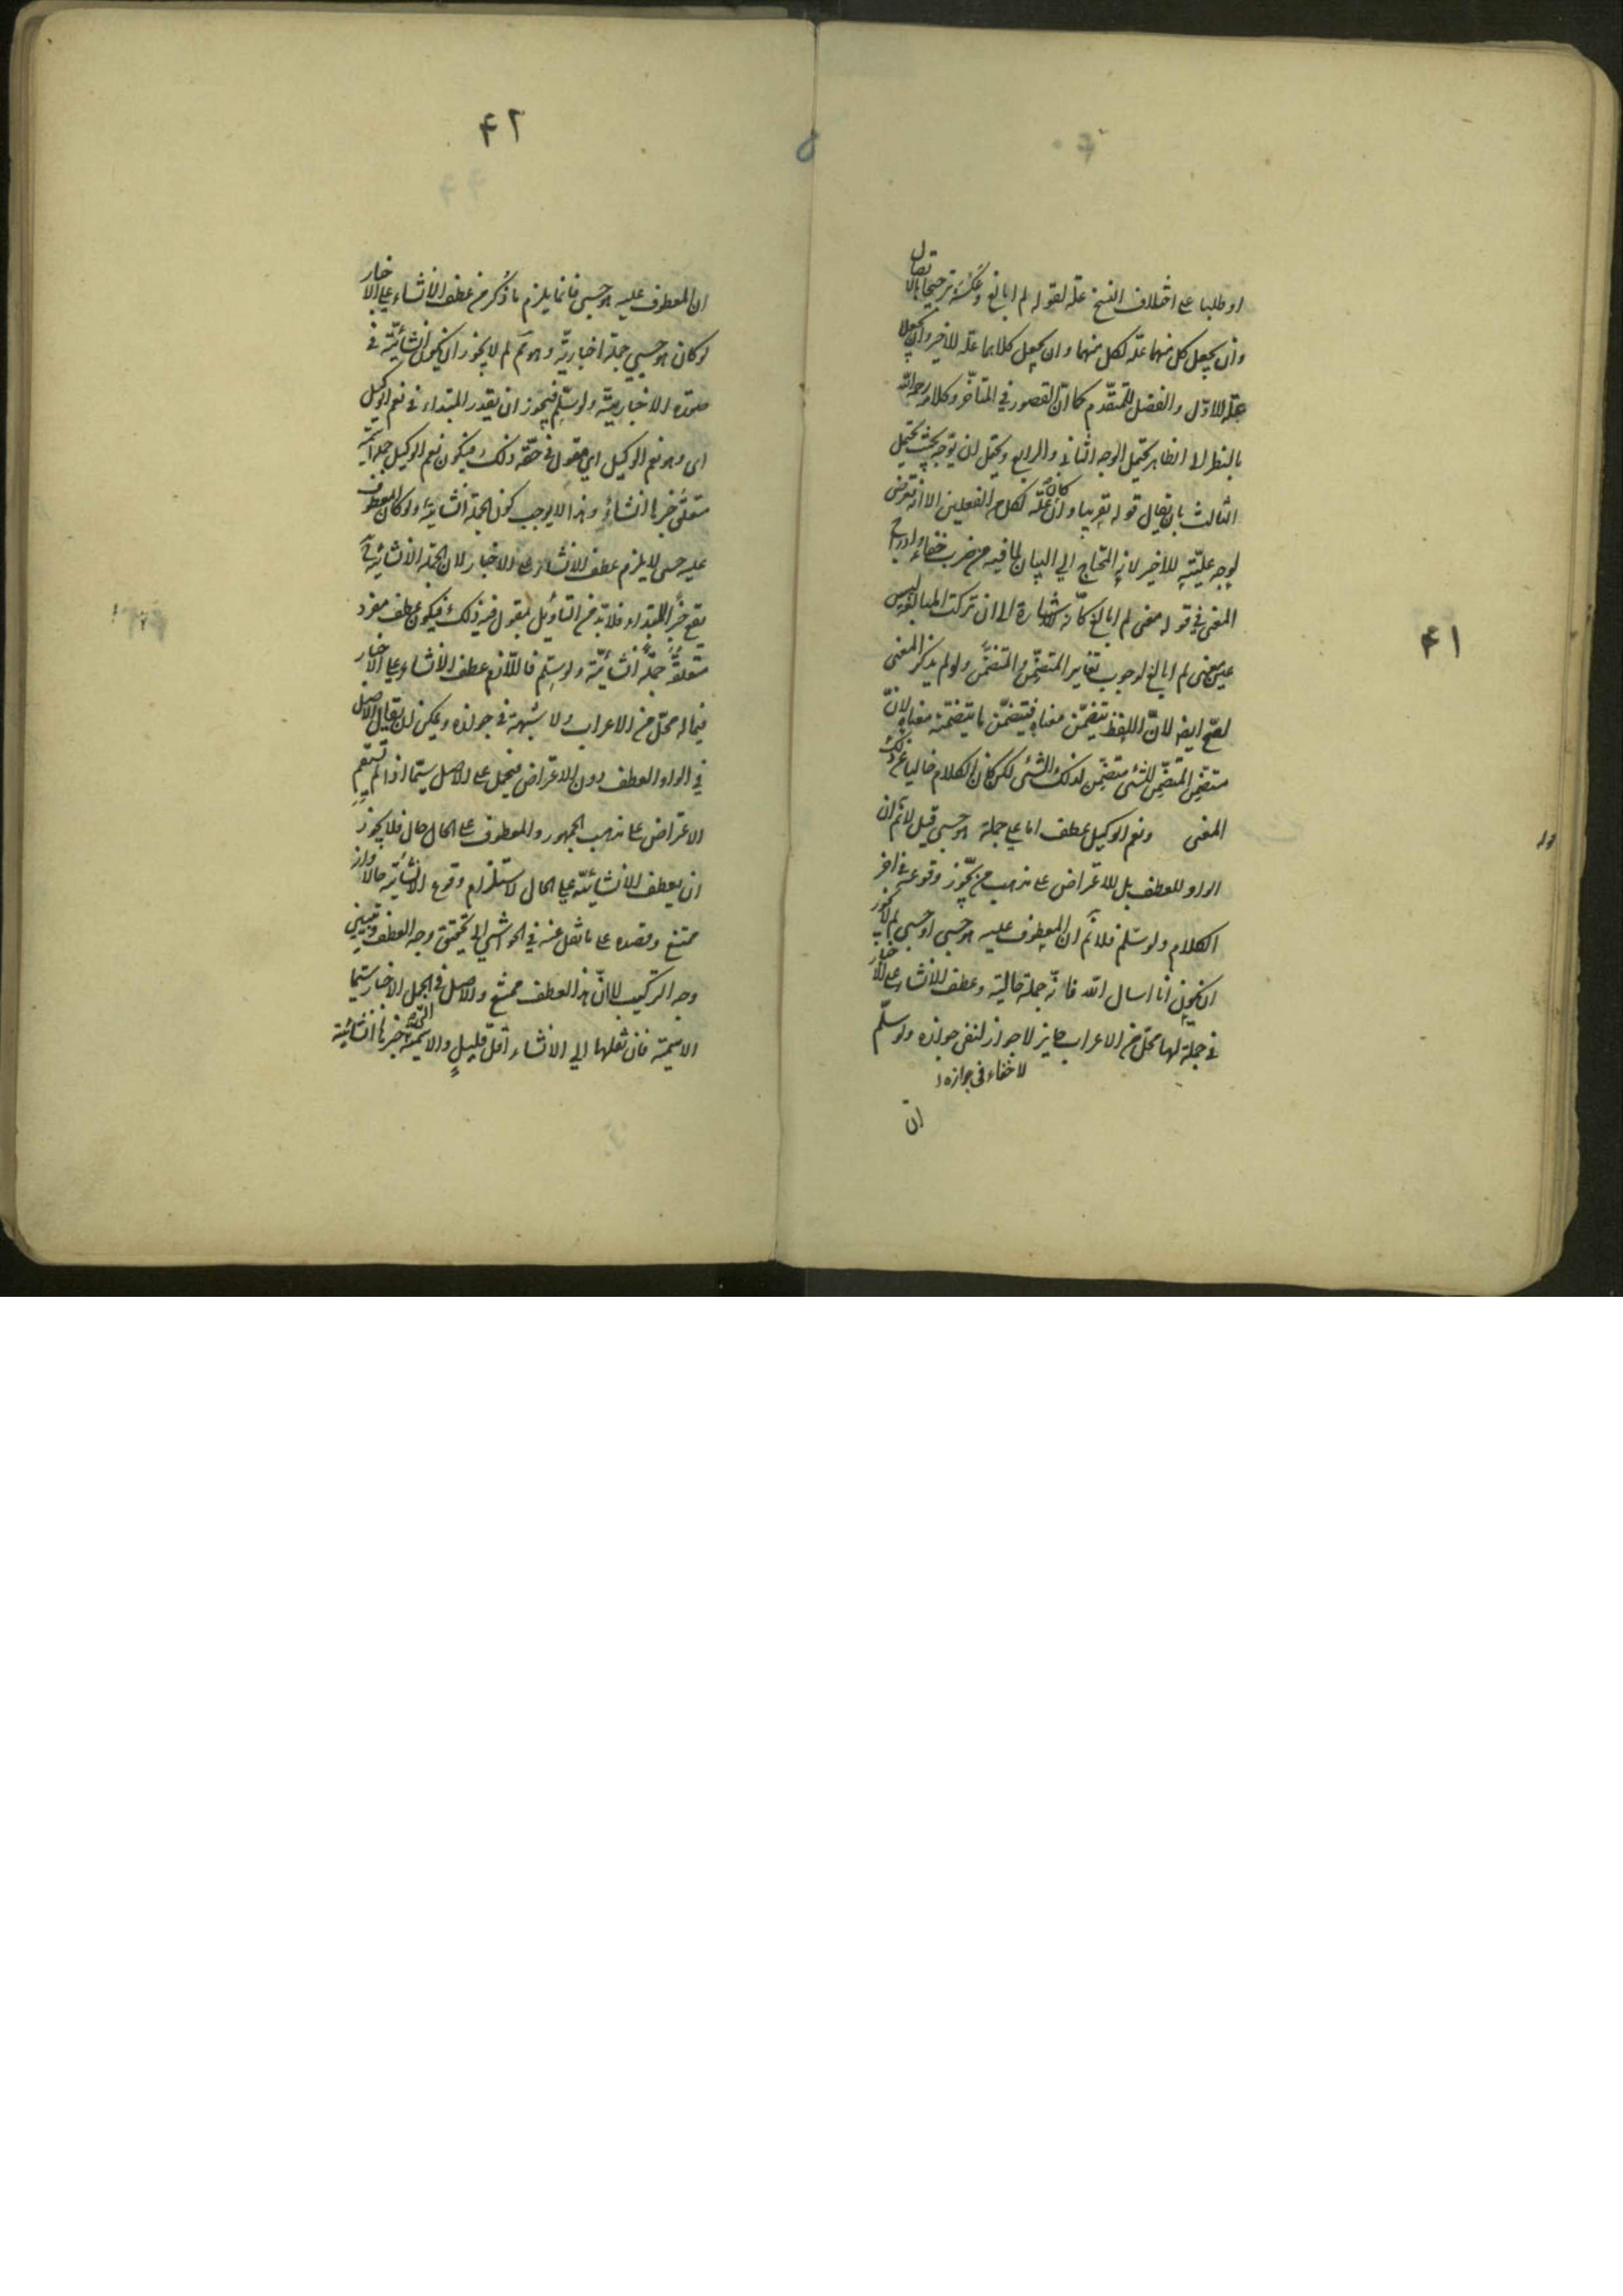 ٤١
او طلبا على اختلاف النسخ علة لقوله لم ابالغ وعكسه ترجيحا بالاتصال
وان يجعل كل منهما علة لكل منهما وان يجعل كلاهما علة للاخير وان يجعلا
علة للاول والفضل للمتقدم كما ان القصور في المتأخر وكلامه رحمه الله
بالنظر الى الظاهر يحتمل الوجه الثاني والرابع ويحتمل ان يوجه بحيث يحتمل
الثالث بان يقال قوله تقريبا وان كان علة لكل من الفعلين الا انه تعرض
لوجه علّيّته للاخير لانه المحتاج الى البيان لما فيه من ضرب خفاء وادراج
المعنى في قوله معنى لم ابالغ كأنه للاشارة الى ان تركت المبالغة ليس
عين معنى لم ابالغ لوجوب تغاير المتضمِّن والمتضمَّن ولو لم يذكر المعنى
لصح ايضا لانّ اللفظ يتضمّن معناه فيتضمّن ما يتضمّنه معناه لانّ
متضمّن المتضمّن للشئ متضمّن لذلك الشئ لكن كان الكلام خاليا عن ذلك
المعنى ونعم الوكيل عطف اما على جملة هو حسبي قيل لا نم ان
الواو للعطف بل للاعتراض على مذهب من يجوّز وقوعه في آخر
الكلام ولو سلّم فلا نم ان المعطوف عليه هو حسبي او حسبي لم لا يجوز
ان يكون انا اسال الله فانه جملة حالية وعطف الانشاء على الاخبار
في جملة لها محل من الاعراب جايز لا جواز لنفى جوازه ولو سلّم
لا خفاء في جوازه
ان
٤٢
ان المعطوف عليه هو حسبي فانما يلزم ما ذكر من عطف الانشاء على الاخبار
لو كان هو حسبي جملة اخبارية وهو مم لم لا يجوز ان يكون انشائيّة في
صورة الاخبارية ولو سلّم فيجوز ان يقدر المبتداء في نعم الوكيل
اى وهو نعم الوكيل اى مقول في حقه ذلك فيكون نعم الوكيل جملة اسمية
متعلق خبرها انشاء وهذا لا يوجب كون الجملة انشائية ولو كان المعطوف
عليه حسبي لا يلزم عطف الانشاء على الاخبار لان الجملة الانشائية لا
تقع خبرا للمبتداء فلا بد من التأويل بمقول فيه ذلك فيكون عطف مفرد
متعلقه جملة انشائية ولو سلم فاللازم عطف الانشاء على الاخبار
فيما له محل من الاعراب ولا شبهة في جوازه ويمكن ان يقال الاصل
في الواو العطف دون الاعتراض فيحمل على الاصل سيّما اذا لم يستقم
الاعتراض على مذهب الجمهور والمعطوف على الحال حال فلا يجوز
ان يعطف الانشائية على الحال لاستلزام وقوع الانشائية حالا واز
ممتنع وقصده على ما نقل عنه في الحواشي الى تحقيق وجه العطف وتبيين
وجه التركيب لا انّ هذا العطف ممتنع والاصل في الجمل الاخبار سيما
الاسمية فان نقلها الى الانشاء اقل قليل والاسمية التي خبرها انشائية